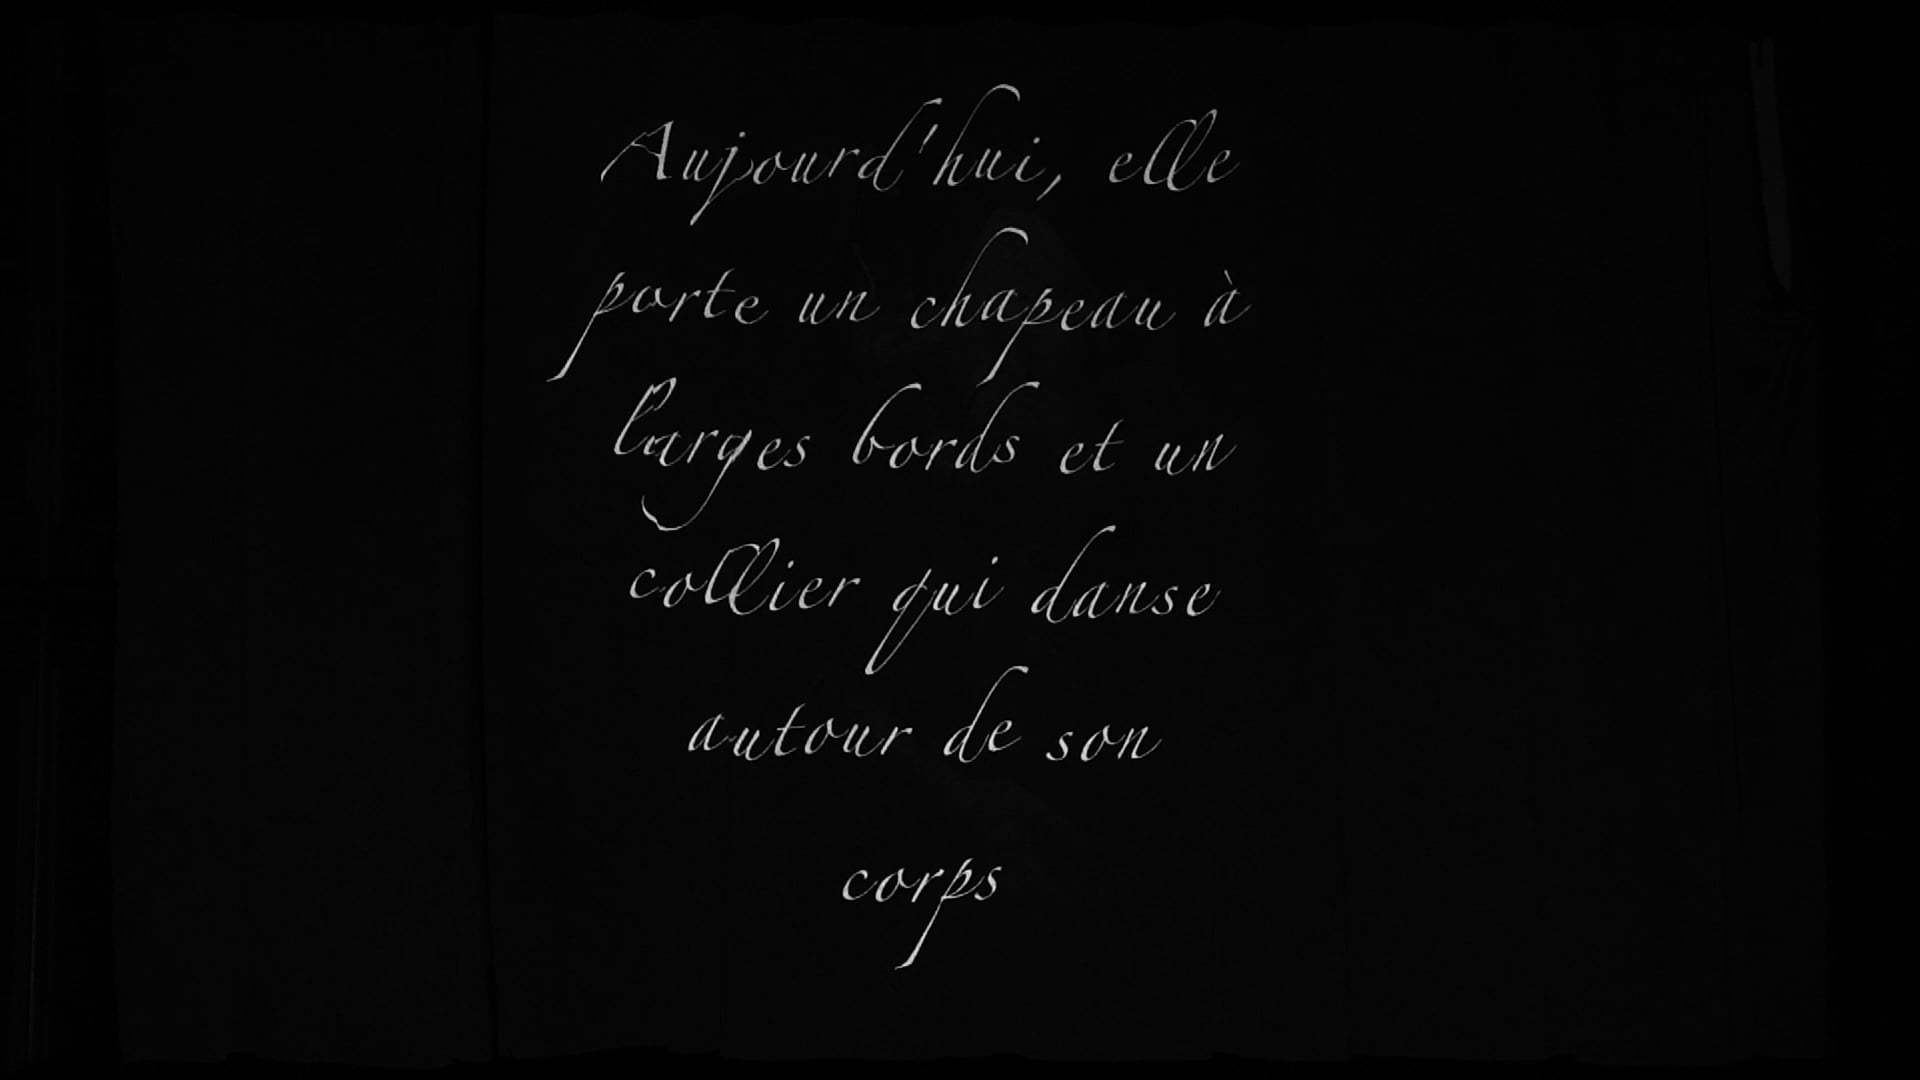 Aujourd'hui, elle
porte un chapeau à
larges bords et un
collier qui danse
autour de son
corps